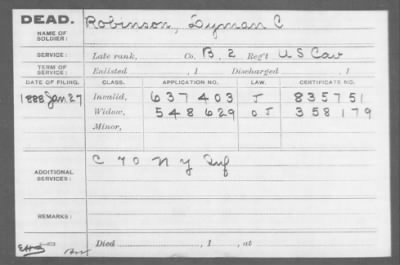 DEAD.
NAME OF SOLDIER: Robinson, Lyman C
SERVICE: Late rank, Co. B, 2 Reg't U S Cav
TERM OF SERVICE: Enlisted , 1 Discharged , 1
DATE OF FILING. CLASS. APPLICATION NO. LAW. CERTIFICATE NO.
1888 Jan 27 Invalid, 637403 J 835751
Widow, 548629 O J 358179
Minor,
ADDITIONAL SERVICES: C 70 N Y Inf
REMARKS:
Died , 1 , at